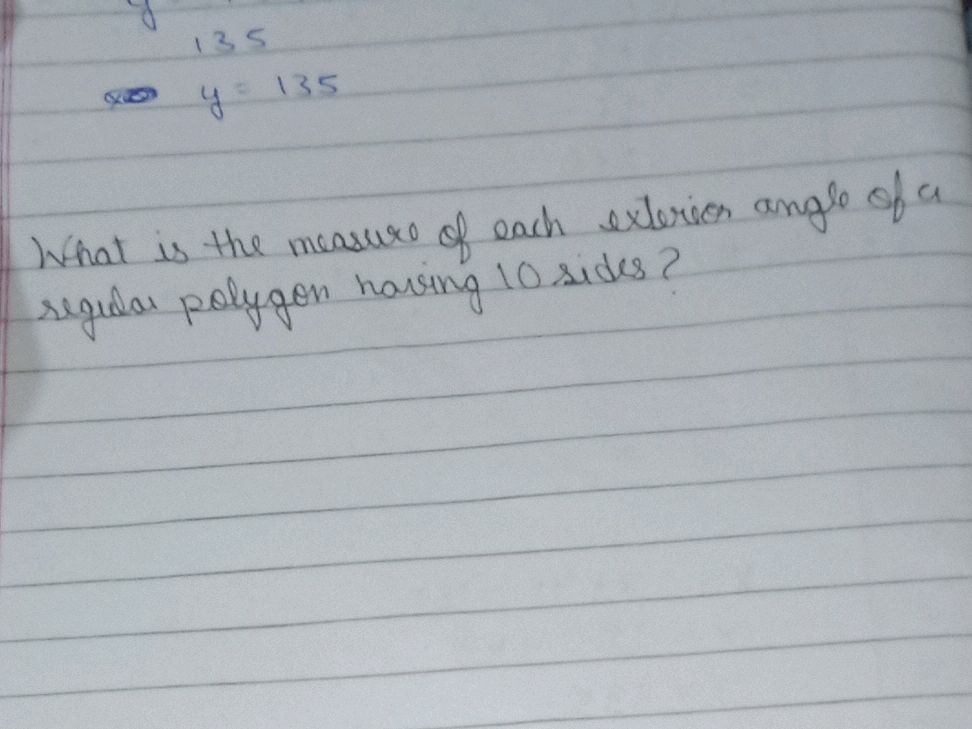 y
135
y = 135
What is the measure of each exterior angle of a
regular polygon having 10 sides?